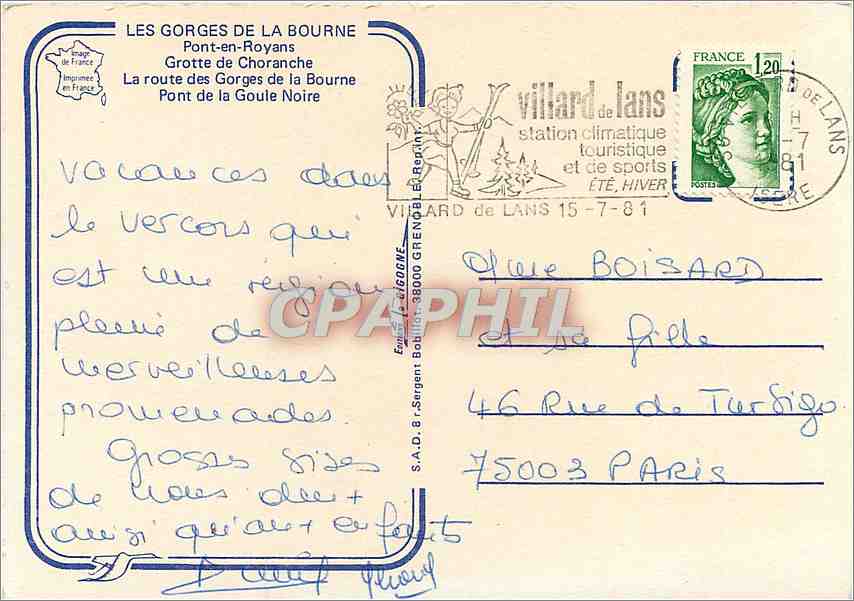 LES GORGES DE LA BOURNE
Pont-en-Royans
Grotte de Choranche
La route des Gorges de la Bourne
Pont de la Goule Noire
Image
de France
Imprimée
en France
vacances dans
le vercors qui
est une région
pleine de
merveilleuses
promenades.
Grosses bises
de nous deux
ainsi qu'aux enfants
Editions La CIGOGNE
S.A.D. 8 r. Sergent Bobillot, 38000 GRENOBLE
villard de lans
station climatique
touristique
et de sports
ÉTÉ, HIVER
VILLARD de LANS 15-7-81
FRANCE 1,20
POSTES
DE LANS
H
-7
81
ISERE
Mme BOISARD
et sa fille
46 Rue de Turbigo
75003 PARIS
CPAPHIL